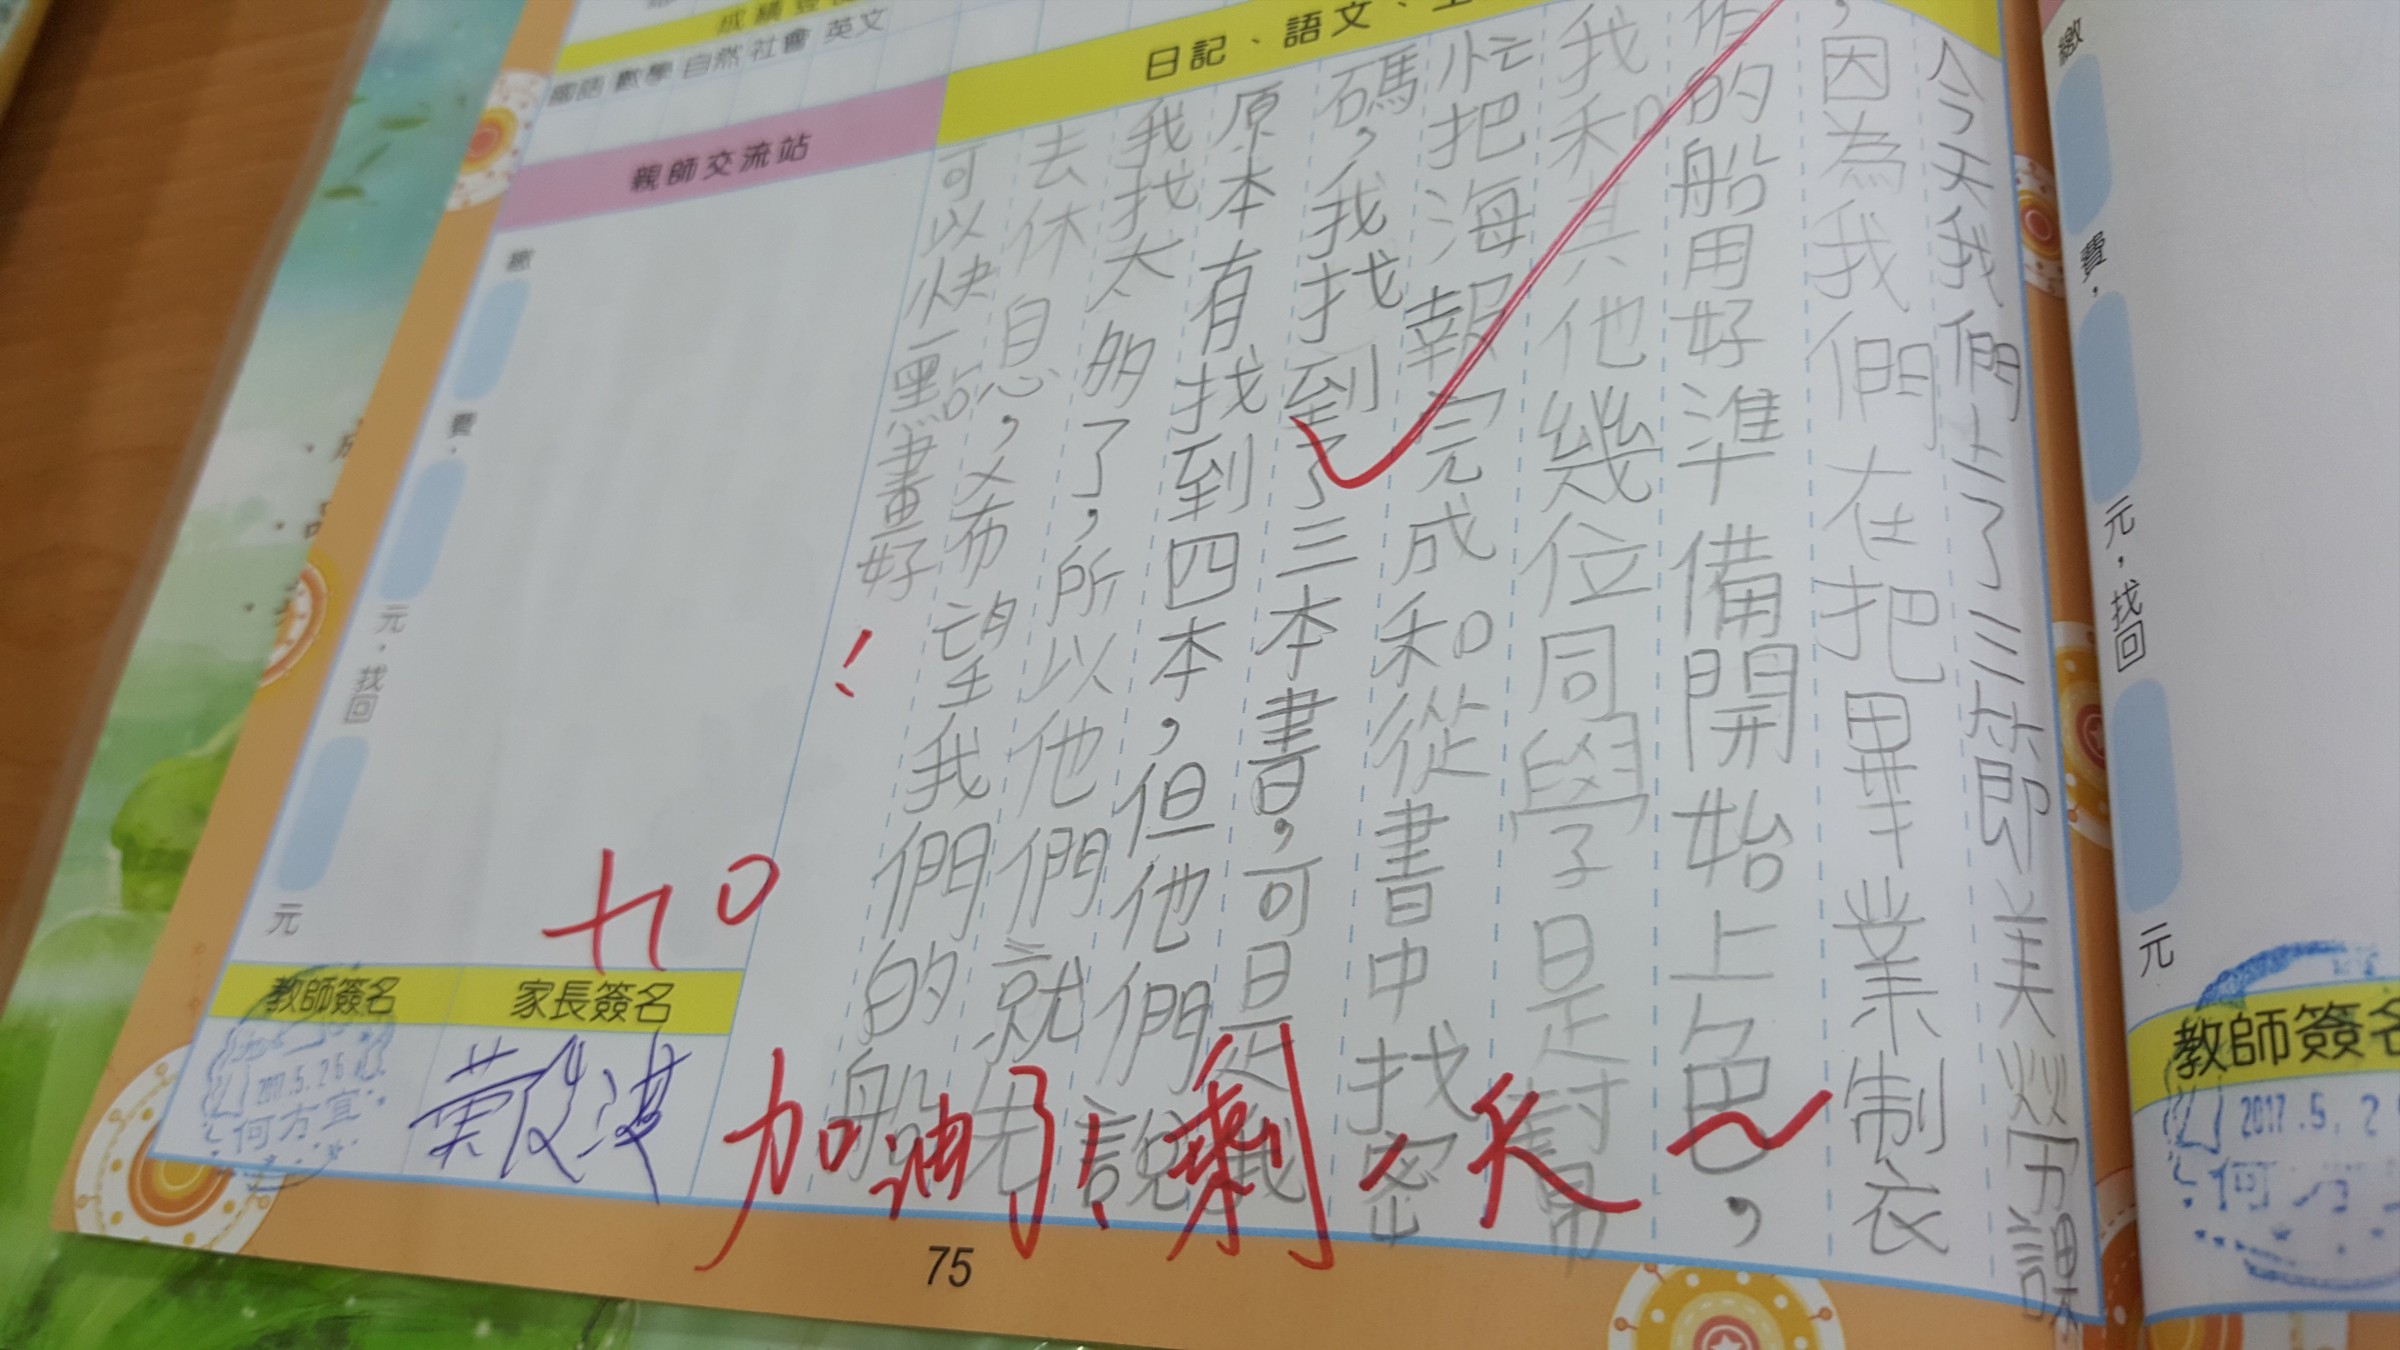 國語 數學 自然 社會 英文
日記、語文、
今天我們上了三節美勞課
,因為我們在把畢業制衣
作的船用好準備開始上色,
我和其他幾位同學是幫
忙把海報完成和從書中找密
碼,我找到了三本書,可是
原本有找到四本,但他們說
我找太多了,所以他們就先
去休息,希望我們的船
可以快一點畫好!
加油!剩一天~
+10
親師交流站
繳
費,
元,找回
元
教師簽名
家長簽名
2017.5.26
何方宜
75
繳
費,
元,找回
元
教師簽名
2017.5.2